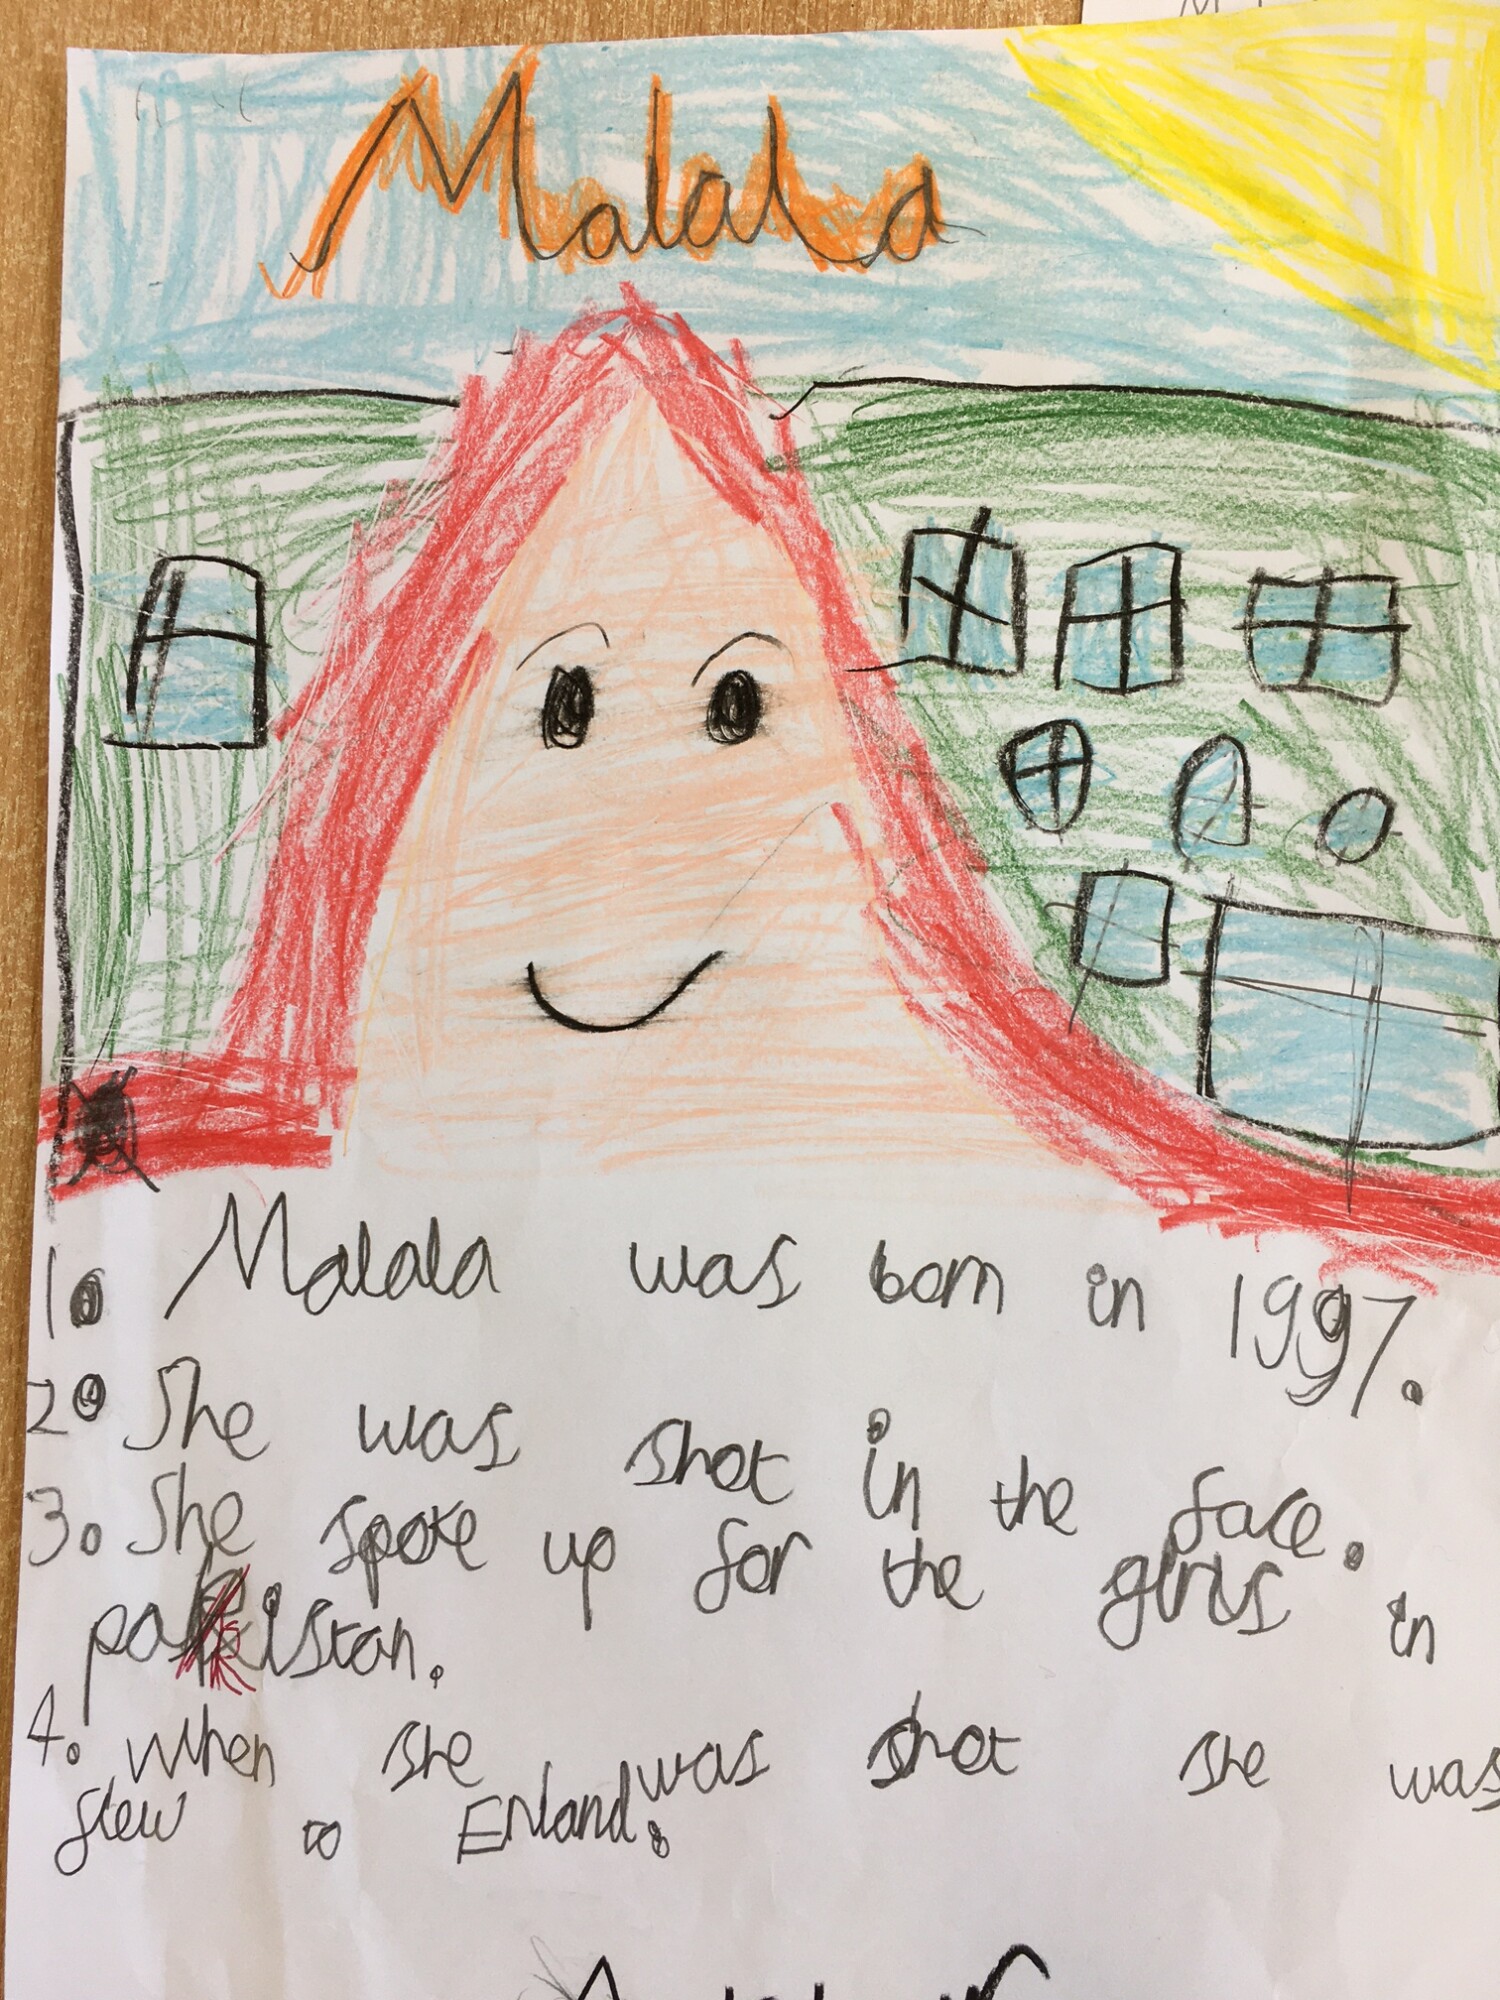 Malala
1. Malala was born in 1997.
2. She was shot in the face.
3. She spoke up for the girls in
pakistan.
4. When she was shot she was
flew to Enland.